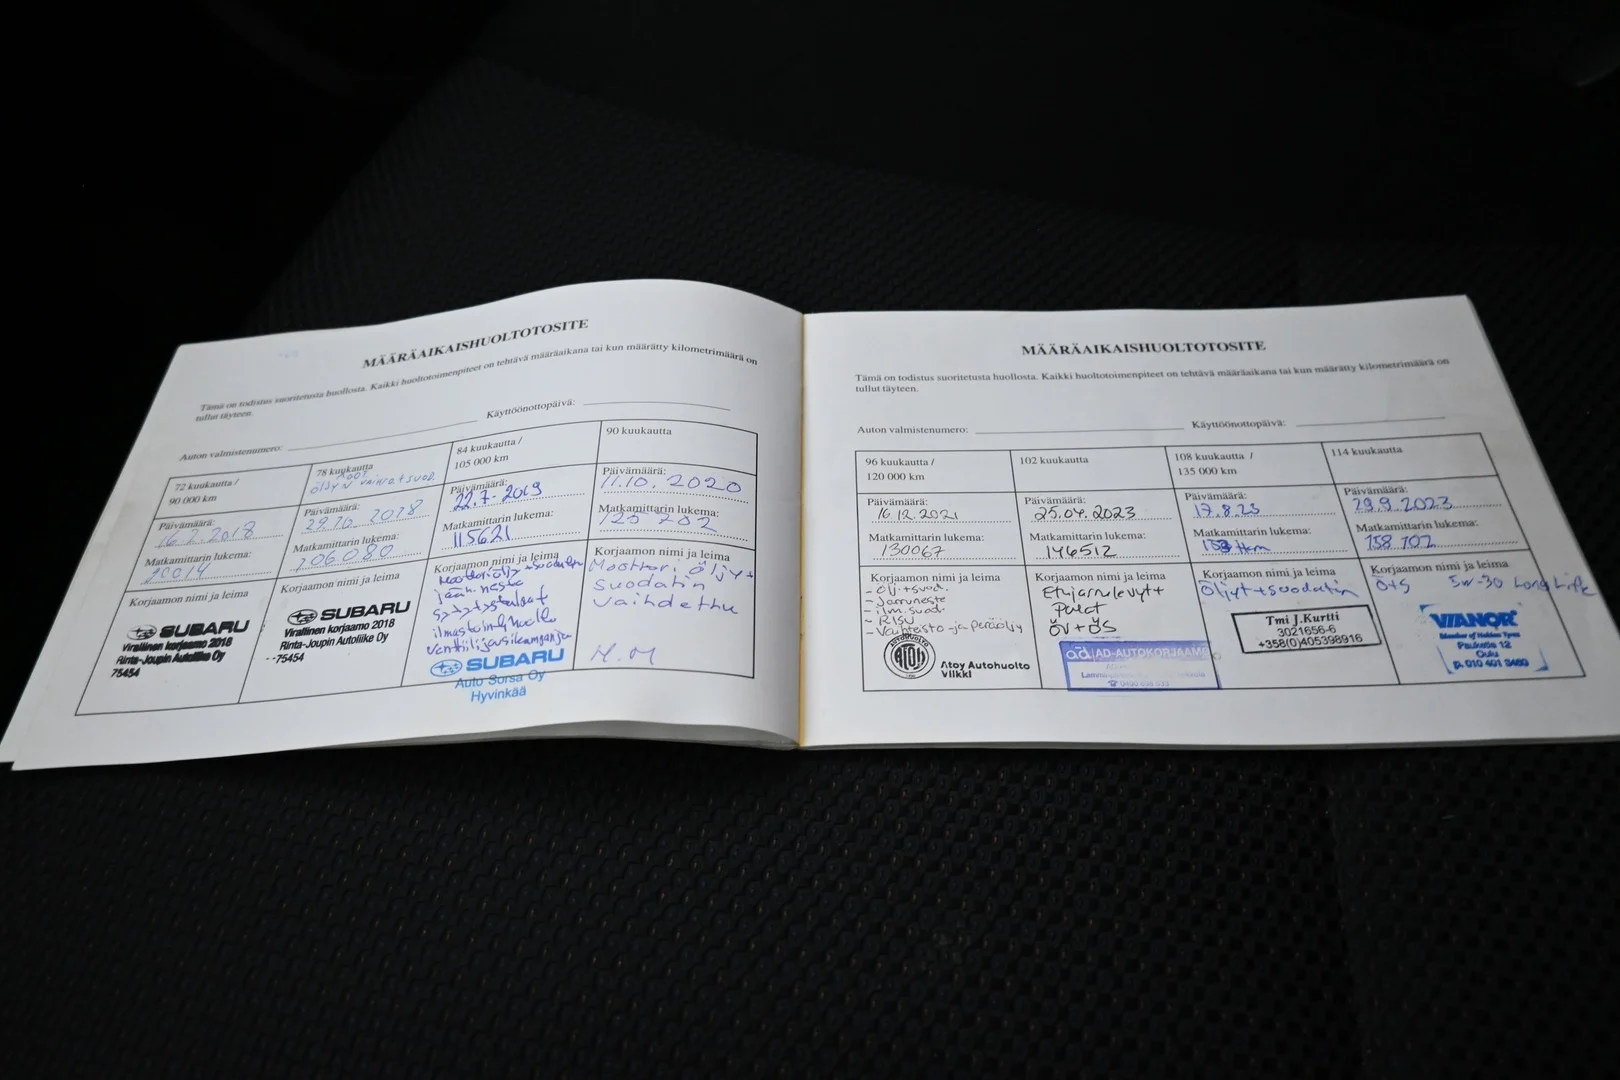 MÄÄRÄAIKAISHUOLTOTOSITE
Tämä on todistus suoritetusta huollosta. Kaikki huoltotoimenpiteet on tehtävä määräaikana tai kun määrätty kilometrimäärä on
tullut täyteen.
Auton valmistenumero:
Käyttöönottopäivä:
72 kuukautta /
90 000 km
Päivämäärä:
16.2.2018
Matkamittarin lukema:
90014
Korjaamon nimi ja leima
SUBARU
Virallinen korjaamo 2018
Rinta-Joupin Autoliike Oy
75454
78 kuukautta
öljyn vaihto + suod.
Päivämäärä:
29.10.2018
Matkamittarin lukema:
106080
Korjaamon nimi ja leima
SUBARU
Virallinen korjaamo 2018
Rinta-Joupin Autoliike Oy
75454
84 kuukautta /
105 000 km
Päivämäärä:
22.7.2019
Matkamittarin lukema:
115621
Korjaamon nimi ja leima
Moottoriöljy + suodatin
jään. neste
SUBARU
Auto Sorsa Oy
Hyvinkää
90 kuukautta
Päivämäärä:
11.10.2020
Matkamittarin lukema:
125 202
Korjaamon nimi ja leima
Moottori öljy +
suodatin
vaihdettu
M.M
MÄÄRÄAIKAISHUOLTOTOSITE
Tämä on todistus suoritetusta huollosta. Kaikki huoltotoimenpiteet on tehtävä määräaikana tai kun määrätty kilometrimäärä on
tullut täyteen.
Auton valmistenumero:
Käyttöönottopäivä:
96 kuukautta /
120 000 km
Päivämäärä:
16.12.2021
Matkamittarin lukema:
130067
Korjaamon nimi ja leima
- Öljy+suod.
- Jarruneste
- ilm.suod.
- R134
- Vaihteisto -ja peräöljy
AUTOHUOLTO
ATOY
Atoy Autohuolto
Viikki
102 kuukautta
Päivämäärä:
25.04.2023
Matkamittarin lukema:
146512
Korjaamon nimi ja leima
Etujarrulevyt+
Palat
ÖV+ÖS
ad AD-AUTOKORJAAMO
108 kuukautta /
135 000 km
Päivämäärä:
17.8.23
Matkamittarin lukema:
Korjaamon nimi ja leima
Öljyt+suodatin
Tmi J.Kurtti
3021656-6
+358(0)405398916
114 kuukautta
Päivämäärä:
29.9.2023
Matkamittarin lukema:
158 702
Korjaamon nimi ja leima
Ö+S 5W-30 Long Life
VIANOR
Member of Nokian Tyres
Paukatie 12
Oulu
p. 010 401 3460